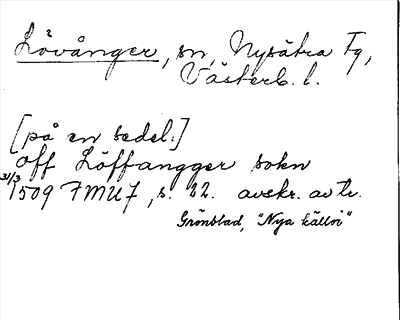 Lövånger, sn, Nysätra Tg,
Västerb. l.
[på en sedel.]
off Löffangger sokn
31/3 1509 FMU 7, s. 22. avskr. av tr.
Grönblad, "Nya källor"